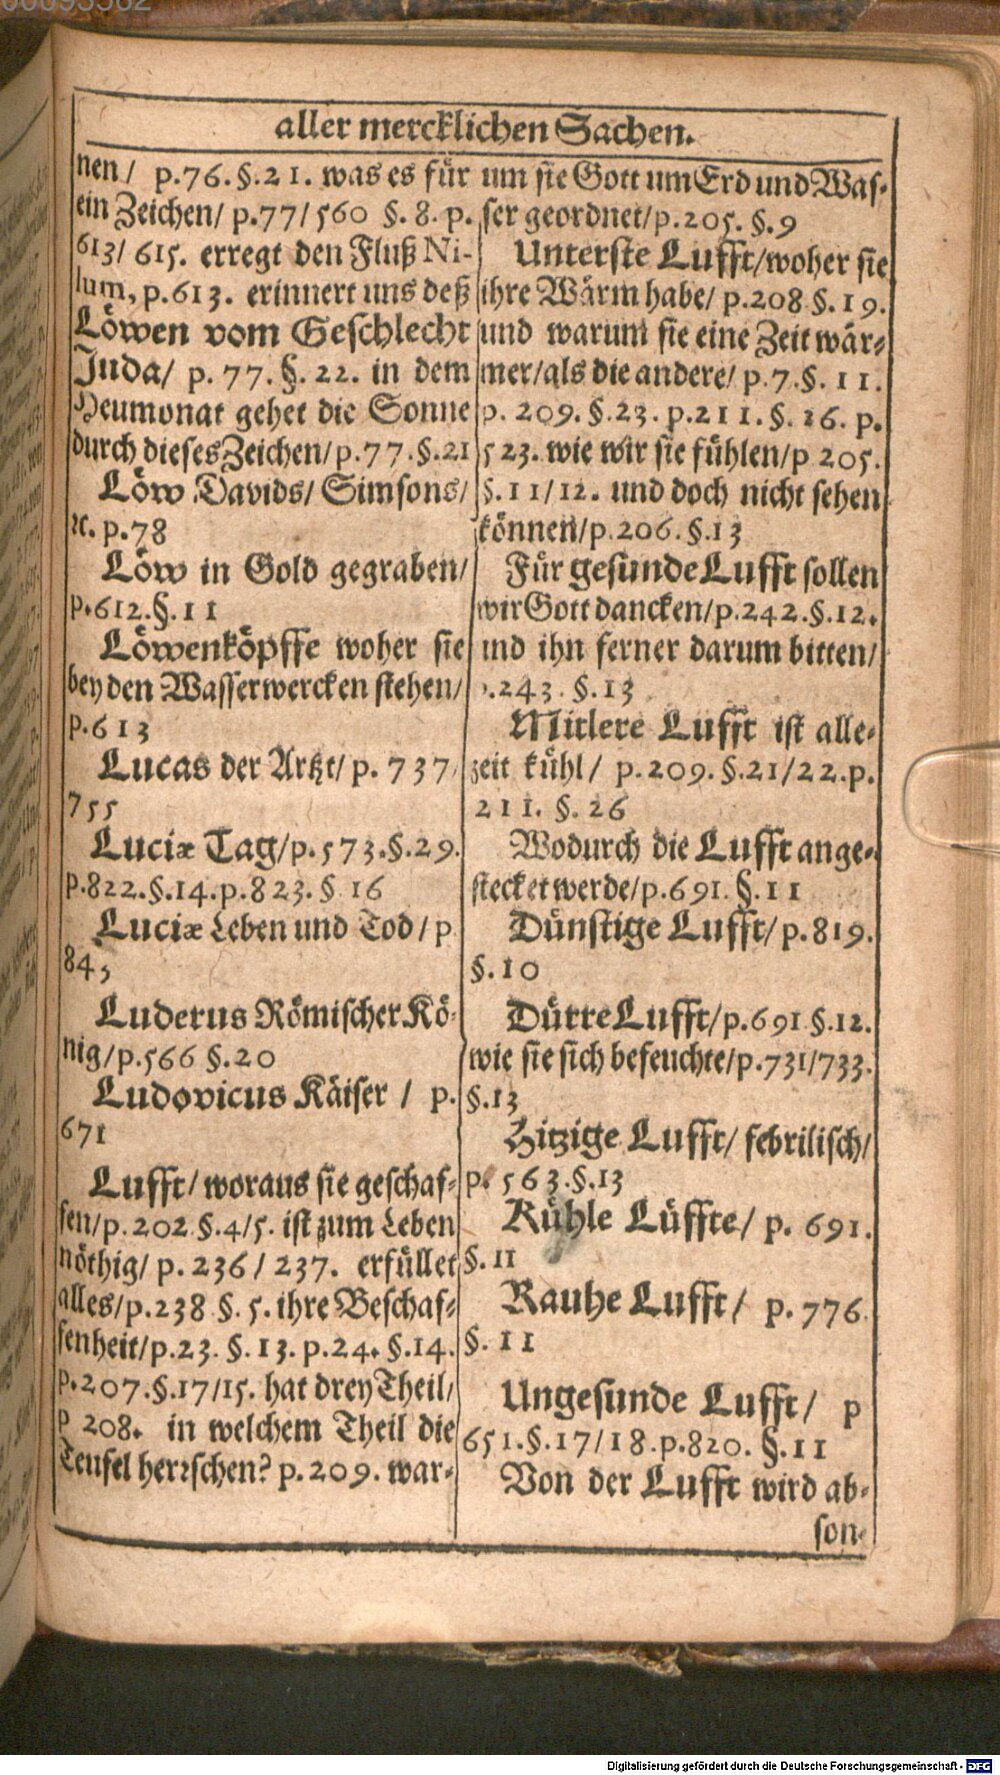 aller mercklichen Sachen.
nen/ p.76.§.21. was es für
ein Zeichen/ p.77/560 §. 8. p.
613/ 615. erregt den Fluß Ni-
lum, p.613. erinnert uns deß
Löwen vom Geschlecht
Juda/ p. 77.§. 22. in dem
Heumonat gehet die Sonne
durch dieses Zeichen/p.77.§.21
Löw Davids/ Simsons/
ꝛc. p.78
Löw in Gold gegraben/
p.612.§.11
Löwenköpffe woher sie
bey den Wasserwercken stehen/
p.613
Lucas der Artzt/ p. 737/
755
Luciæ Tag/p.573.§.29.
p.822.§.14.p.823.§ 16
Luciæ Leben und Tod/ p
845
Luderus Römischer Kö-
nig/p.566 §.20
Ludovicus Käiser / p.
671
Lufft/ woraus sie geschaf-
fen/p.202 §.4/5. ist zum Leben
nöthig/ p.236/237. erfüllet
alles/p.238 §.5. ihre Beschaf-
fenheit/p.23. §.13. p.24. §.14.
p.207.§.17/15. hat drey Theil/
p 208. in welchem Theil die
Teufel herꝛschen? p.209. war-
um sie Gott um Erd und Was-
ser geordnet/p.205. §.9
Unterste Lufft/woher sie
ihre Wärm habe/ p.208 §.19.
und warum sie eine Zeit wär-
mer/als die andere/ p.7.§.11.
p. 209. §.23. p.211.§. 26. p.
523. wie wir sie fühlen/p 205.
§.11/12. und doch nicht sehen
können/p.206.§.13
Für gesunde Lufft sollen
wir Gott dancken/p.242.§.12.
und ihn ferner darum bitten/
p.243. §.13
Mitlere Lufft ist alle-
zeit kühl/ p.209. §.21/22.p.
211. §. 26
Wodurch die Lufft ange-
stecket werde/p.691. §.11
Dünstige Lufft/ p.819.
§.10
Dürre Lufft/p.691 §.12.
wie sie sich befeuchte/p.731/733.
§.13
Hitzige Lufft/ febrilisch/
p. 563.§.13
Kühle Lüffte/ p. 691.
§.11
Rauhe Lufft/ p. 776.
§. 11
Ungesunde Lufft/ p
651.§.17/18.p.820. §.11
Von der Lufft wird ab-
son-
Digitalisierung gefördert durch die Deutsche Forschungsgemeinschaft - DFG